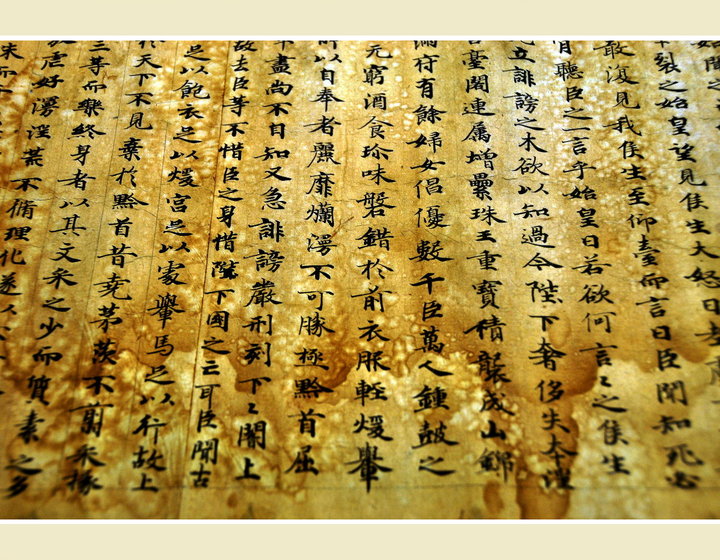 裂之始皇望見侯生大怒曰老
敢復見我侯生至仰臺而言曰臣聞知死必
聽臣之一言乎始皇曰若欲何言言之侯生
立誹謗之木欲以知過今陛下奢侈失本淫
臺閣連屬增纍珠玉重寶積襲成山錦
府有餘婦女倡優數千臣萬人鍾鼓之
窮酒食珍味磐錯於前衣服輕煖轝
以自奉者麗靡爛漫不可勝極黔首屈
盡尚不自知又急誹謗嚴刑刻下下闇上
故去臣等不惜臣之身惜陛下國之亡耳臣聞古
足以飽衣足以煖宮足以處轝馬足以行故上
天下不見棄於黔首昔堯茅茨不翦采椽
三等而樂終身者以其文采之少而質素之多
虐好漫淫荒不脩理化遂以